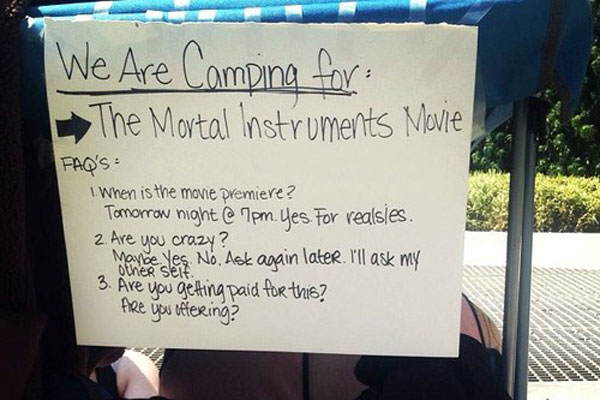 We Are Camping for:
The Mortal Instruments Movie
FAQ's:
1. When is the movie premiere?
Tomorrow night @ 7pm. Yes. For realsies.
2. Are you crazy?
Maybe. Yes. No. Ask again later. I'll ask my
other self.
3. Are you getting paid for this?
Are you offering?